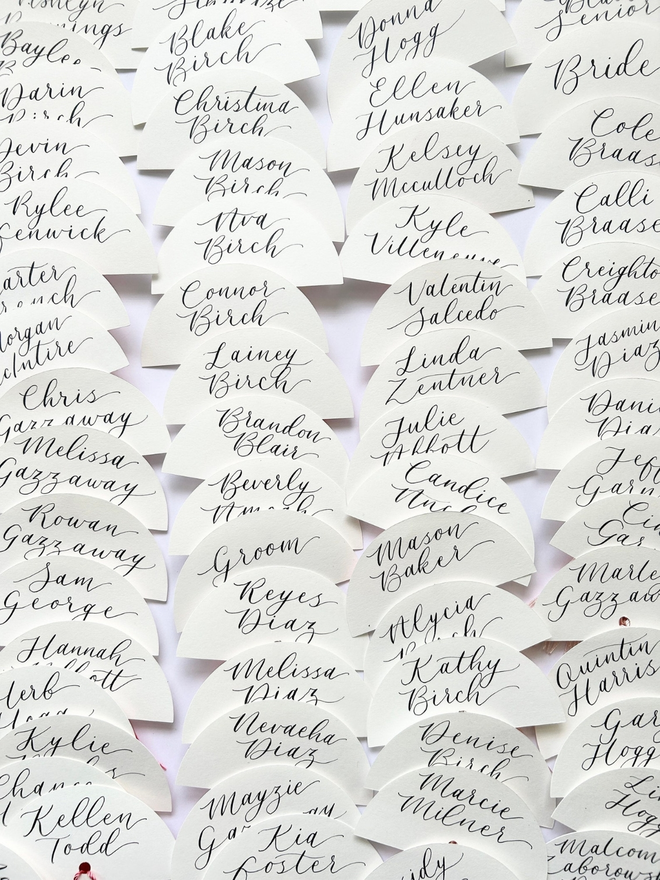 Baylee
Darin
Birch
Devin
Birch
Rylee
Fenwick
Carter
French
Morgan
McIntire
Chris
Gazzaway
Melissa
Gazzaway
Rowan
Gazzaway
Sam
George
Hannah
Herb
Hogg
Kylie
Kellen
Todd
Blake
Birch
Christina
Birch
Mason
Birch
Ava
Birch
Connor
Birch
Lainey
Birch
Brandon
Blair
Beverly
Groom
Reyes
Diaz
Melissa
Diaz
Nevaeha
Diaz
Mayzie
Kia
Foster
Donna
Hogg
Ellen
Hunsaker
Kelsey
Mcculloch
Kyle
Villeneuve
Valentin
Salcedo
Linda
Zentner
Julie
Abbott
Candice
Mason
Baker
Alycia
Birch
Kathy
Birch
Denise
Birch
Marcie
Milner
Senior
Bride
Cole
Braase
Calli
Braase
Creighton
Braase
Jasmin
Diaz
Diaz
Quintin
Harris
Hogg
Hogg
Malcom
Zaborows